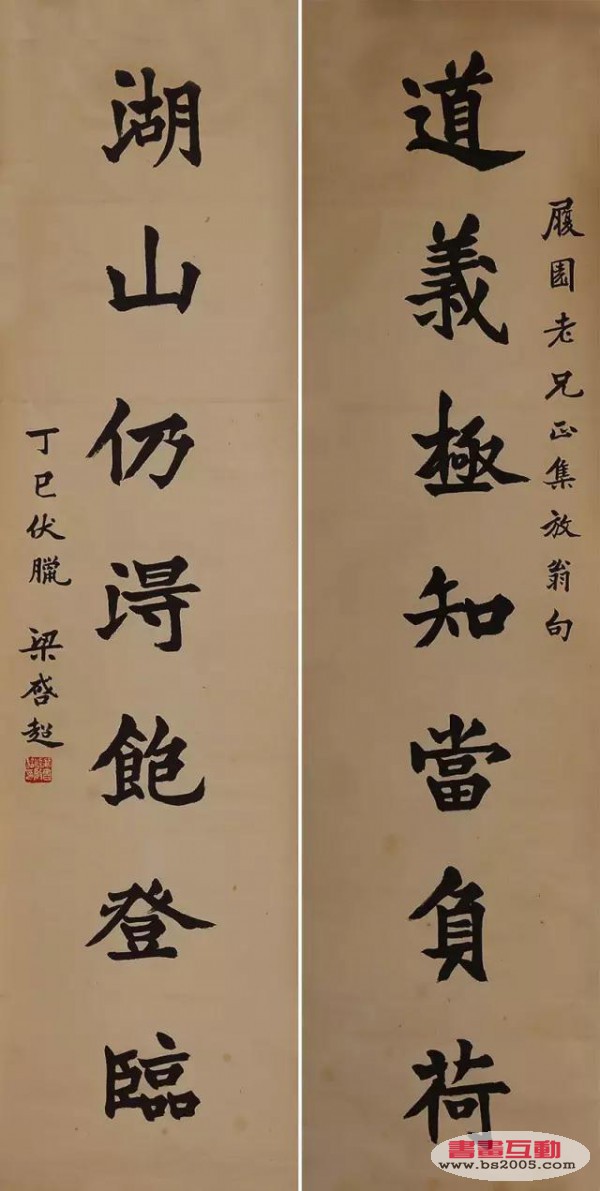 履園老兄正集放翁句
道義極知當負荷
湖山仍得飽登臨
丁巳伏臘 梁啓超
書畫互動
www.bs2005.com